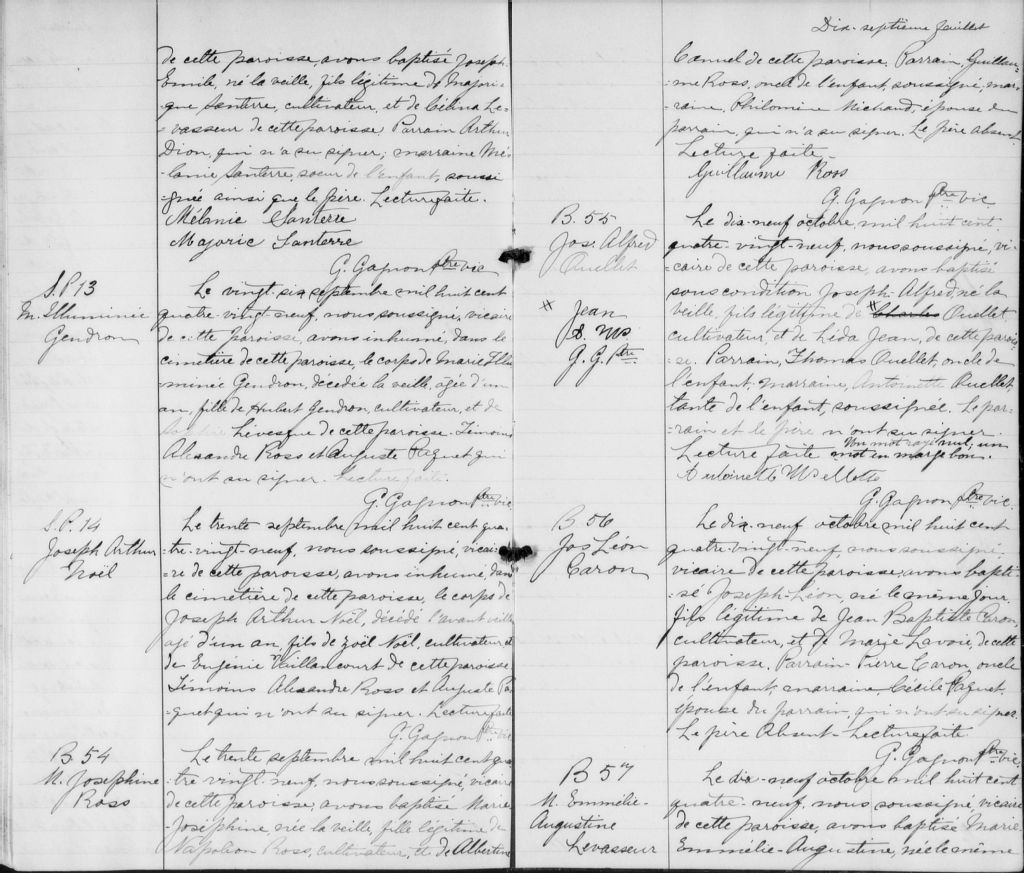 de cette paroisse, avons baptisé Joseph
Emile, né la veille, fils légitime de Majori-
que Santerre, cultivateur, et de Célina Le-
vasseur de cette paroisse. Parrain Arthur
Dion, qui n'a su signer; marraine Mé-
lanie Santerre, soeur de l'enfant, soussi
gnée ainsi que le père. Lecture faite.
Mélanie Santerre
Majoric Santerre
G. Gagnon Ptre vic
S.P 13
M. Illuminée
Gendron
Le vingt-six septembre mil huit cent
quatre-vingt-neuf, nous soussigné, vicaire
de cette paroisse, avons inhumé, dans le
cimetière de cette paroisse, le corps de Marie Illu
minée Gendron, décédée la veille, agée d'un
an, fille de Hubert Gendron, cultivateur, et de
Lévesque de cette paroisse. Témoins
Alexandre Ross et Auguste Paquet qui
n'ont su signer. Lecture faite.
G. Gagnon Ptre vic.
S.P. 14
Joseph Arthur
Noël
Le trente septembre mil huit cent qua-
tre-vingt-neuf, nous soussigné, vicai-
=re de cette paroisse, avons inhumé, dans
le cimetière de cette paroisse, le corps de
Joseph Arthur Noël, décédé l'avant veille
agé d'un an, fils de Zoël Noël, cultivateur, et
de Eugénie Vaillancourt de cette paroisse.
Témoins Alexandre Ross et Auguste Pa-
quet qui n'ont su signer. Lecture faite
G. Gagnon Ptre vic
B 54
M. Josephine
Ross
Le trente septembre mil huit cent qua
tre-vingt-neuf, nous soussigné, vicaire
de cette paroisse, avons baptisé Marie
Joséphine née la veille, fille légitime de
Napoléon Ross, cultivateur, et de Albertine
Dix-septième feuillet
Canuel de cette paroisse. Parrain, Guillau-
me Ross, oncle de l'enfant, soussigné, mar-
=raine, Philomène Michaud, épouse du
parrain, qui n'a su signer. Le père absent.
Lecture faite.
Guillaume Ross
G. Gagnon Ptre vic
B. 55
Jos. Alfred
Ouellet
Le dix-neuf octobre, mil huit cent
quatre-vingt-neuf, nous soussigné, vi-
caire de cette paroisse, avons baptisé
sous condition Joseph-Alfred, né la
veille, fils légitime de # Charles Ouellet
# Jean
G. G. Ptre
cultivateur, et de Léda Jean, de cette parois-
se. Parrain, Thomas Ouellet, oncle de
l'enfant, marraine, Antoinette Ouellet,
tante de l'enfant, soussignée. Le par-
rain et le père n'ont su signer.
Un mot rayé nul; un
Lecture faite mot en marge bon.
Antoinette
G. Gagnon Ptre vic.
B. 56
Jos Léon
Caron
Le dix-neuf octobre mil huit cent
quatre-vingt-neuf, nous soussigné,
vicaire de cette paroisse, avons bapti-
=sé Joseph-Léon, né le même jour,
fils légitime de Jean Baptiste Caron,
cultivateur, et de Marie Lavoie, de cette
paroisse. Parrain Pierre Caron, oncle
de l'enfant, marraine Cécile Paquet,
épouse du parrain, qui n'ont su signer.
Le père Absent. Lecture faite.
G. Gagnon Ptre vic.
B 57
M. Emmélie-
Augustine
Levasseur
Le dix-neuf octobre mil huit cent
quatre-neuf, nous soussigné vicaire
de cette paroisse, avons baptisé Marie
Emmélie-Augustine, née le même